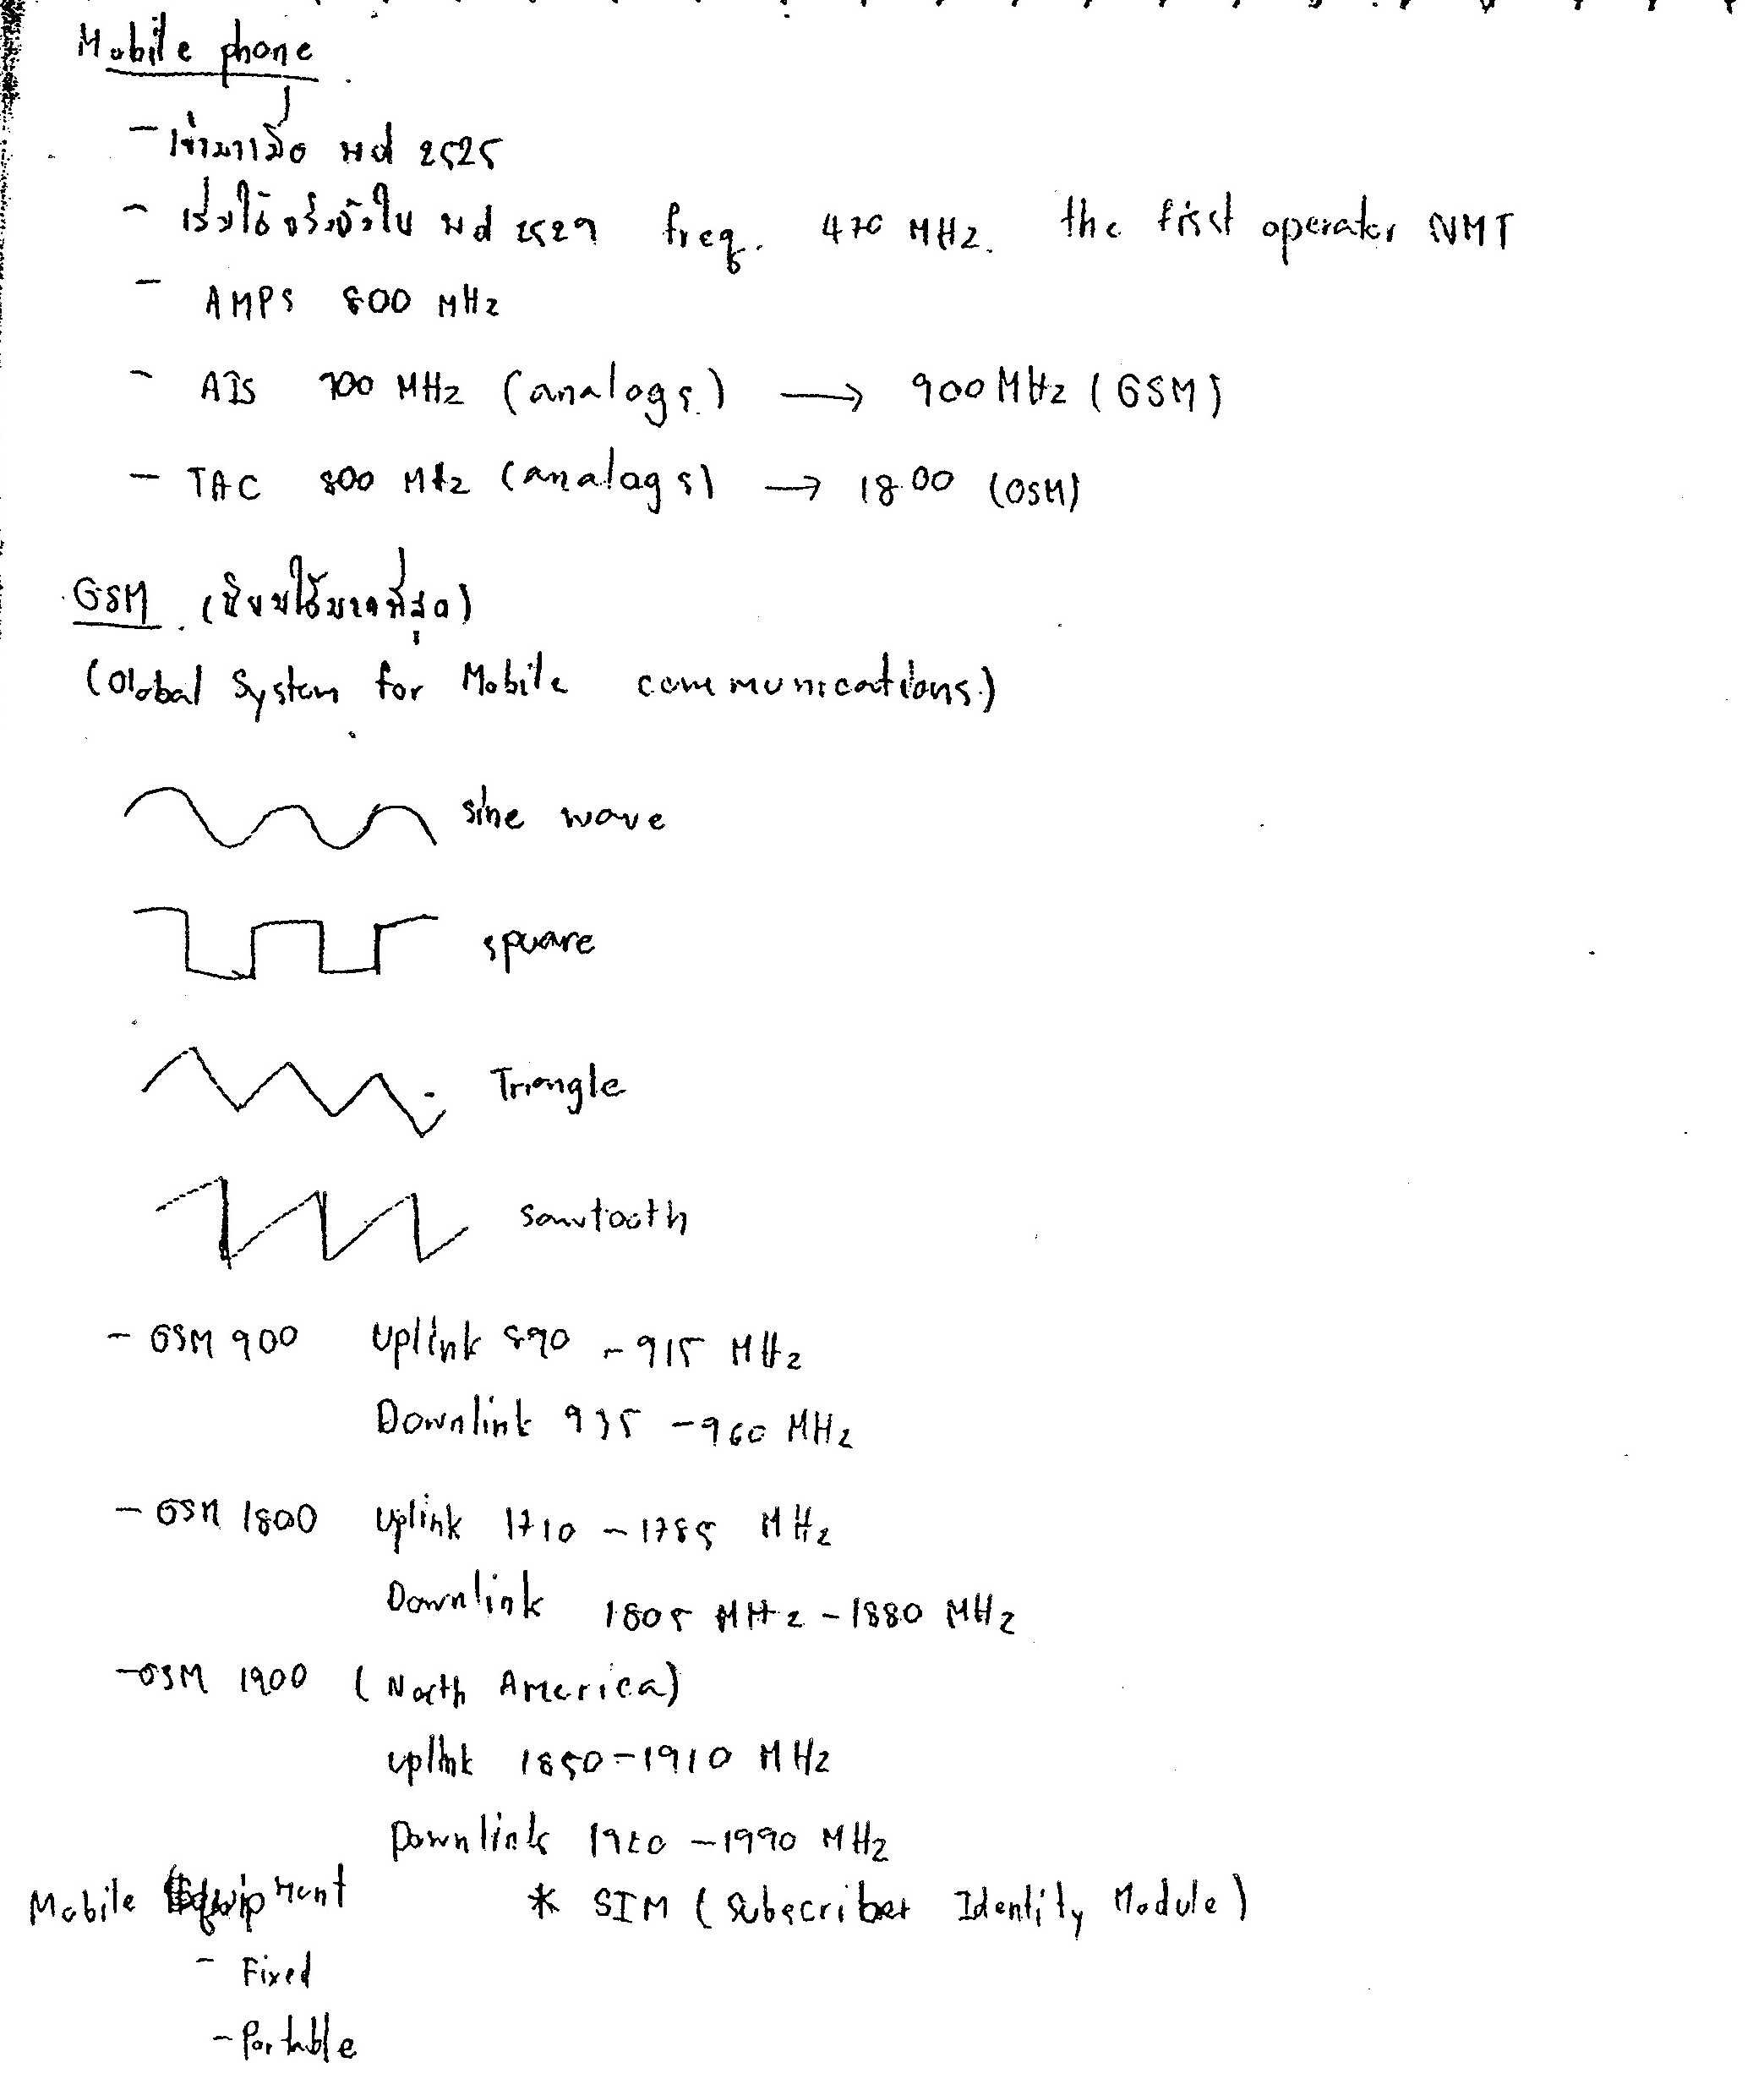 Mobile phone
- เข้ามาเมื่อ พศ 2525
- เริ่มใช้จริงจังใน พศ 2529 freq. 470 MHz. the first operator NMT
- AMPS 800 MHz
- AIS 900 MHz (analogs) → 900 MHz (GSM)
- TAC 800 MHz (analogs) → 1800 (GSM)
GSM (นิยมใช้มากที่สุด)
(Global System for Mobile communications)
sine wave
square
Triangle
sawtooth
- GSM 900 Uplink 890 - 915 MHz
Downlink 935 - 960 MHz
- GSM 1800 Uplink 1710 - 1785 MHz
Downlink 1805 MHz - 1880 MHz
- GSM 1900 (North America)
uplink 1850 - 1910 MHz
Downlink - 1990 MHz
Mobile Equipment * SIM (Subscriber Identity Module)
- Fixed
- Portable